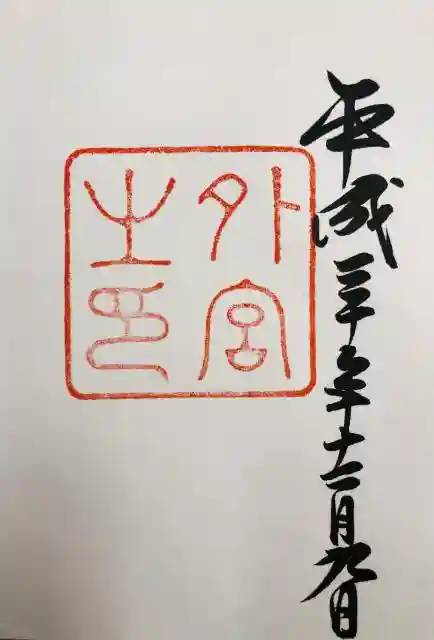 平成三十年十二月九日
外宮
之印